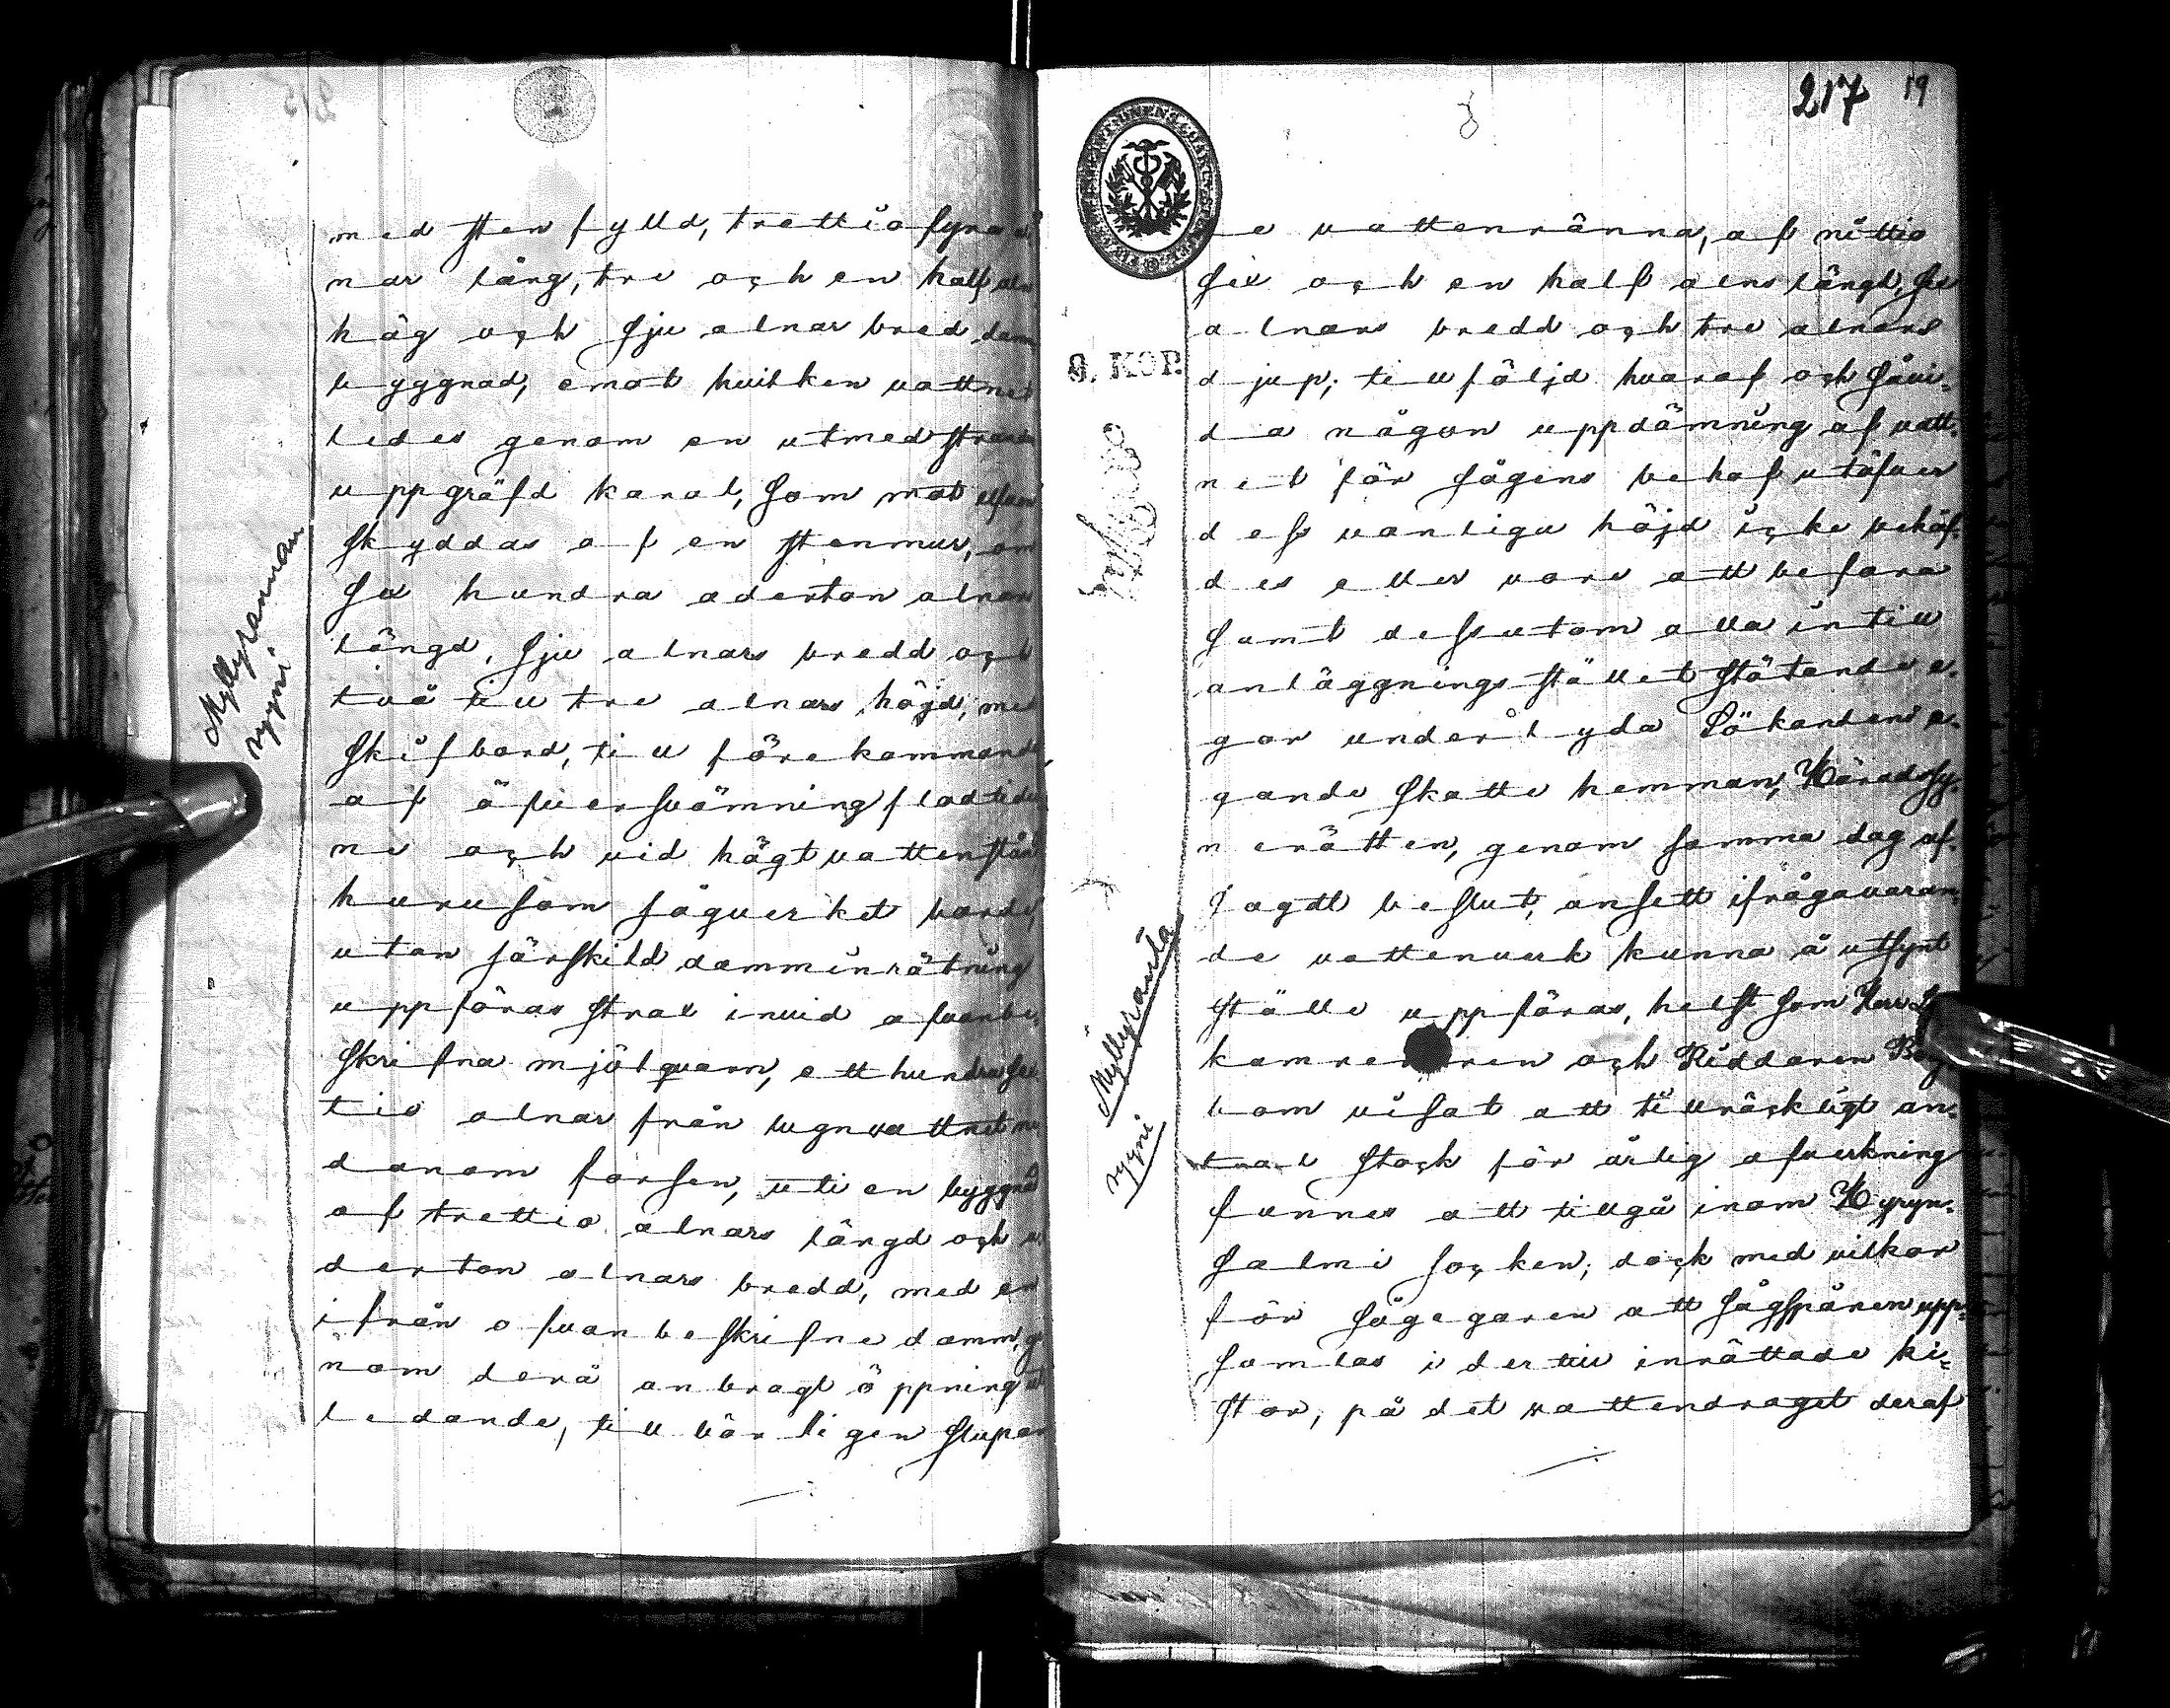 med sten fylld, trettiofyra al
nar lång, tre och en half aln
hög och sju alnar bred dam
byggnad, emot hvilken vattnet
ledes genom en utmed stranden
uppgräfd kanal, som mot elfven
skyddas af en stenmur, om
sex hundra aderton alnars
längd, sju alnars bredd och
två till tre alnars höjd, med
skifbord, till förekommande
af öfversvämning flodtider
ne och vid högt vattenstånd
hurusom sågverket borde
utan särskild damminrätning
uppföras strax invid ofvanbe-
skrifna mjölqvarn, etthundrasex
tio alnar från lugnvattnet ne
danom forsen, uti en byggnad
af trettio alnars längd och a
derton alnars bredd, med en
ifrån ofvanbeskrifne damm, ge
nom derå anbragt öppning ut
ledande, tillbörligen slupan
Myllyrannan
nyyni
217 19
8. KOP.
de vattenränna, af nittio
sex och en half alns längd, sex
alnars bredd och tre alnars
djup; till följd hvaraf och såvi-
da någon uppdämning af vatt-
net för sågens behof utöfver
dess vanliga höjd icke behöf-
des eller vore att befara
samt dessutom alla intill
anläggningsstället stötande e-
gor underlyda Sökandens e-
gande skatte hemman, Häradssy-
nerätten, genom samma dag af-
sagdt beslut, ansett ifrågavaran-
de vattenverk kunna å utsynt
ställe uppföras, helst som Herr
kamreraren och Riddaren
bom visat att tillräckligt an-
tal stock för årlig afverkning
funnes att tillgå inom Hyryn-
salmi socken; dock med vilkor
för sågegaren att sågspånen upp-
samlas i dertill inrättade ki-
stor, på det vattendraget deraf
Myllyranta
nyyni